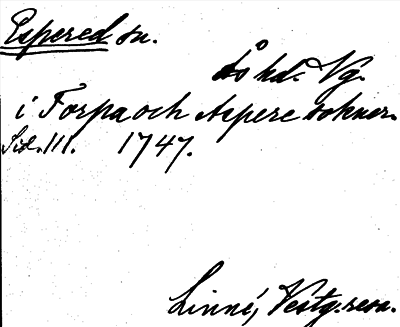 Espered sn.
Ås hd. Vg.
i Torpa och Aspere socknar.
Sid. 111. 1747.
Linné, Västg. resa.